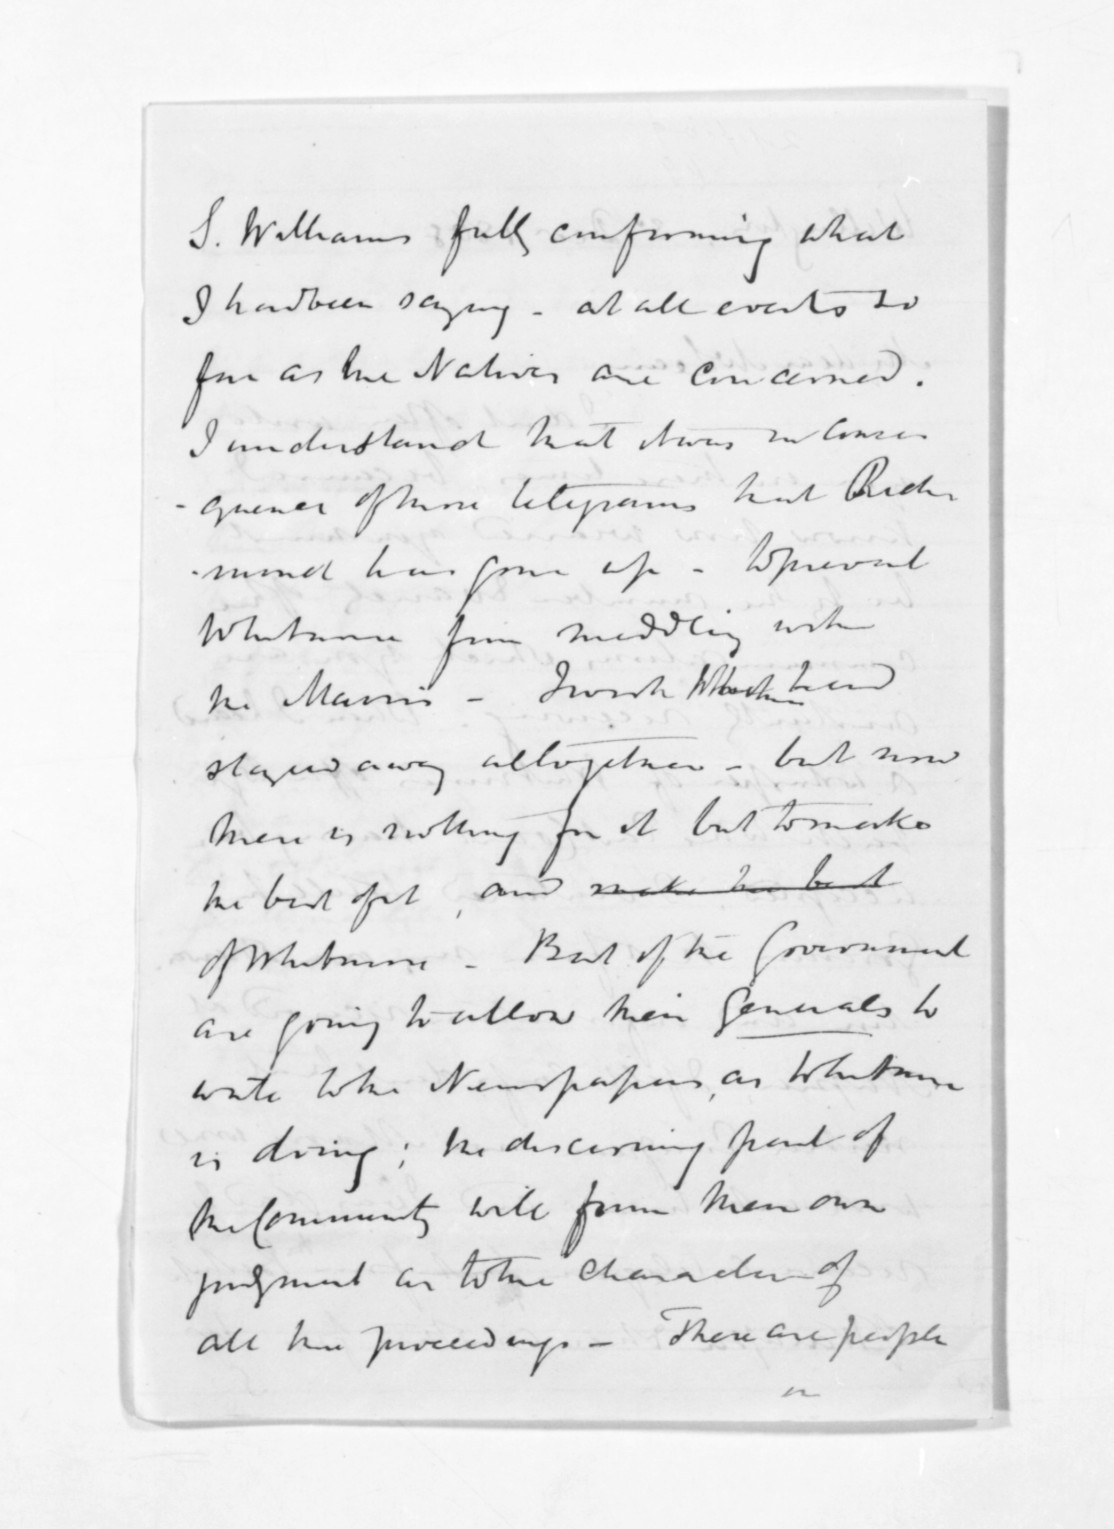 S. Williams fully confirming what
I had been saying - at all events so
far as the Natives are concerned.
I understand that it was in conse
- quence of those telegrams that Rich
- mond has gone up - to prevent
Whitmore from meddling with
the Maoris - I wish had
stayed away altogether - but now
there is nothing for it but to make
the best of it, and make the best
of Whitmore - But if the Government
are going to allow their Generals to
write to the Newspapers, as Whitmore
is doing; the discerning part of
the Community will form their own
judgment as to the character of
all the proceedings - There are people
in